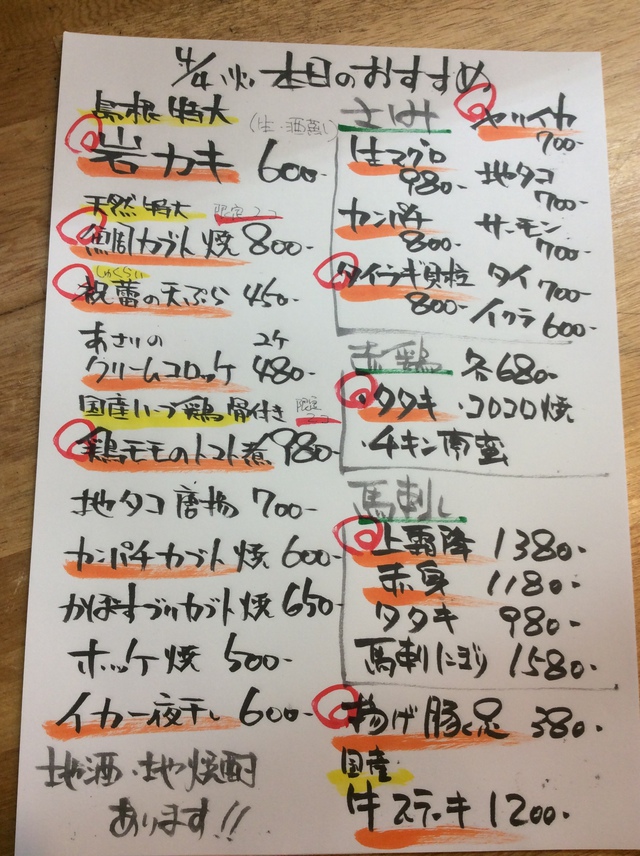 4/4 火 本日のおすすめ
島根 特大
(生・酒蒸し)
岩カキ 600-
天然 特大 限定 2コ
鯛カブト焼 800-
しゅくらい
祝蕾の天ぷら 450-
あさりの 2ケ
クリームコロッケ 480-
国産ハーブ鶏 骨付き 限定 2コ
鶏モモのトマト煮 980-
地タコ唐揚 700-
カンパチカブト焼 600-
かぼすブリカブト焼 650-
ホッケ焼 500-
イカ一夜干し 600-
地酒・地焼酎
あります!!
さしみ
ヤリイカ
700-
生マグロ
980-
地タコ
700-
カンパチ
800-
サーモン
700-
タイラギ貝柱
800-
タイ 700-
イクラ 600-
赤鶏 各680-
・タタキ ・コロコロ焼
・チキン南蛮
馬刺し
上霜降 1380-
赤身 1180-
タタキ 980-
馬刺にぎり 1580-
揚げ豚足 380-
国産
牛ステーキ 1200-